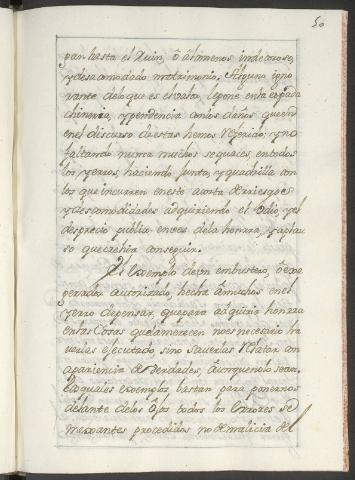 50
pan hasta el Ruin, ò alomenos indecoroso,
y desacomodado matrimonio. Alguno igno
rante delo que es el valor, lepone enla espada
chineria, y pendencia conlos daños que
enel discurso de estas hemos referido; y no
faltando nunca muchos sequaces, en todos
los yerros, haciendo junta, y quadrilla con
los que incurren en este acorta de riesgos
y descomodidades adquiriendo el Odio, y el
desprecio publico en vez dela honrra, y aplau
so que crehia conseguir.
El exemplo de un embustero, ò exa
gerador autorizado, hecha à muchos en el
yerro de pensar, que para adquirir honrra
en las Cosas que la merecen no es necesario ha
verlas ejecutado, sino saverlas relatar con
apariencia de verdades, aunque no lo sean.
Los quales exemplos bastan para ponernos
delante delos Ojos todos los Errores se
mexantes procedidos no de malicia del